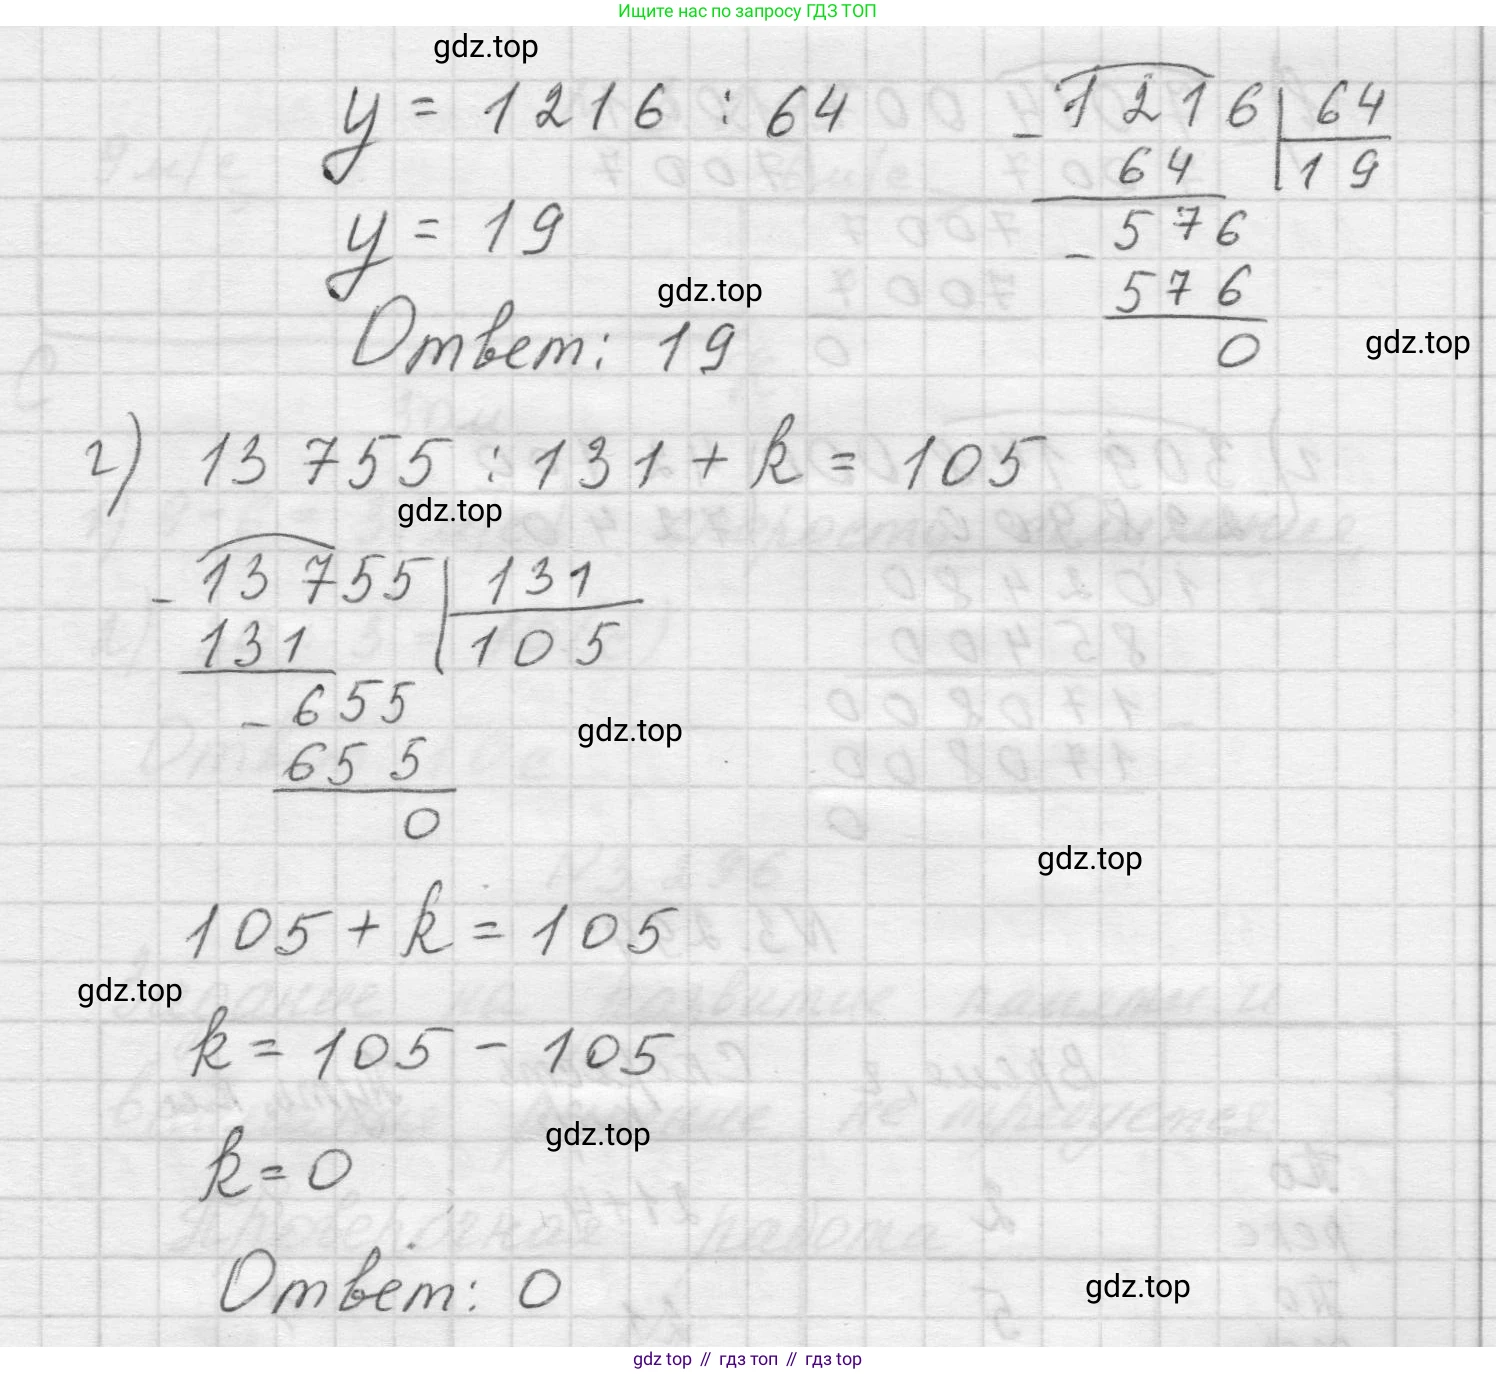 Ищите нас по запросу ГДЗ ТОП
gdz.top
y = 1216 : 64
1216 | 64
- 64
19
y = 19
- 576
576
0
gdz.top
Ответ: 19
gdz.top
г) 13 755 : 131 + k = 105
gdz.top
- 13 755 | 131
131
105
- 655
655
0
gdz.top
gdz.top
105 + k = 105
gdz.top
k = 105 - 105
gdz.top
k = 0
Ответ: 0
gdz.top
gdz top // гдз топ // гдз top